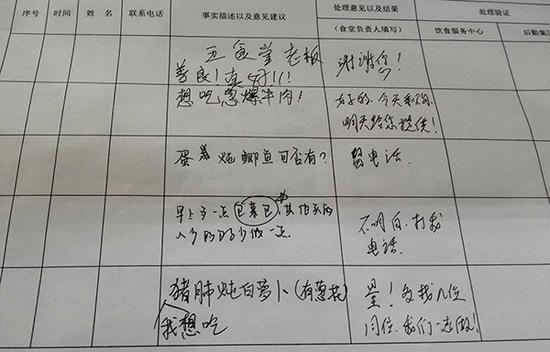 序号
时间
姓 名
联系电话
事实描述以及意见建议
处理意见以及结果
(食堂负责人填写)
处理验证
饮食服务中心
后勤集
五食堂老板
善良!真好!!!
谢谢您!
想吃葱爆牛肉!
好的,今天采购,
明天给您提供!
蛋 炖鲫鱼可否有?
留电话.
早上多一点包菜包,其他买的
人少的 少做一点.
不明白,打我
电话.
猪肺炖白萝卜(有葱花)
我想吃
多找几位
我们一起做!